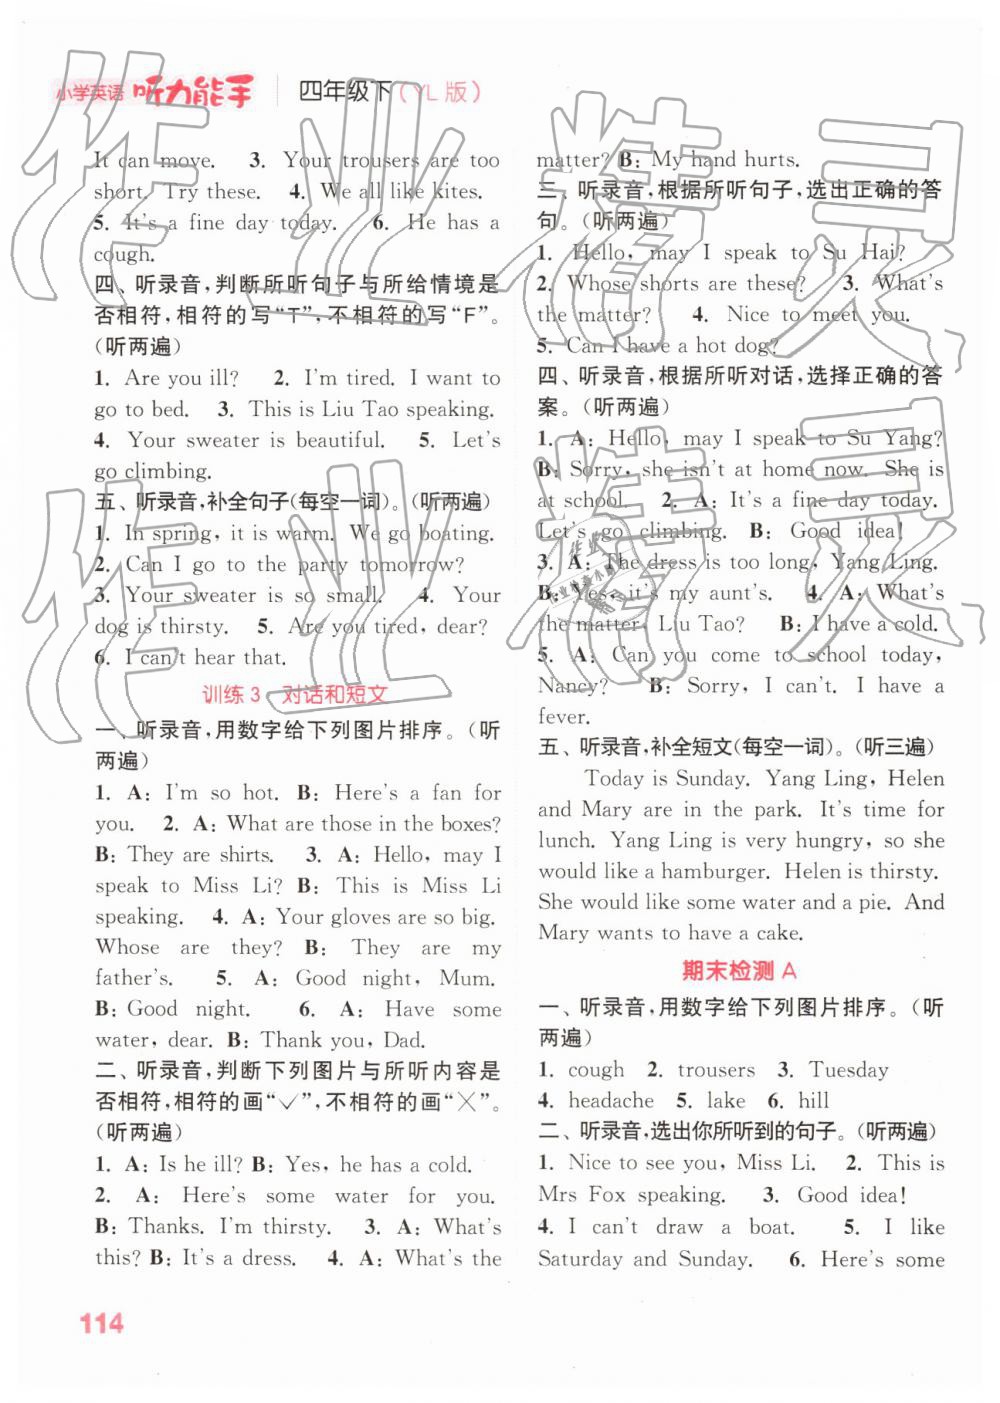 小学英语 听力能手 四年级下(YL版)
It can move. 3. Your trousers are too
short. Try these. 4. We all like kites.
5. It's a fine day today. 6. He has a
cough.
四、听录音,判断所听句子与所给情境是
否相符,相符的写“T”,不相符的写“F”。
(听两遍)
1. Are you ill? 2. I'm tired. I want to
go to bed. 3. This is Liu Tao speaking.
4. Your sweater is beautiful. 5. Let's
go climbing.
五、听录音,补全句子(每空一词)。(听两遍)
1. In spring, it is warm. We go boating.
2. Can I go to the party tomorrow?
3. Your sweater is so small. 4. Your
dog is thirsty. 5. Are you tired, dear?
6. I can't hear that.
训练3 对话和短文
一、听录音,用数字给下列图片排序。(听
两遍)
1. A: I'm so hot. B: Here's a fan for
you. 2. A: What are those in the boxes?
B: They are shirts. 3. A: Hello, may I
speak to Miss Li? B: This is Miss Li
speaking. 4. A: Your gloves are so big.
Whose are they? B: They are my
father's. 5. A: Good night, Mum.
B: Good night. 6. A: Have some
water, dear. B: Thank you, Dad.
二、听录音,判断下列图片与所听内容是
否相符,相符的画“✓”,不相符的画“×”。
(听两遍)
1. A: Is he ill? B: Yes, he has a cold.
2. A: Here's some water for you.
B: Thanks. I'm thirsty. 3. A: What's
this? B: It's a dress. 4. A: What's the
matter? B: My hand hurts.
三、听录音,根据所听句子,选出正确的答
句。(听两遍)
1. Hello, may I speak to Su Hai?
2. Whose shorts are these? 3. What's
the matter? 4. Nice to meet you.
5. Can I have a hot dog?
四、听录音,根据所听对话,选择正确的答
案。(听两遍)
1. A: Hello, may I speak to Su Yang?
B: Sorry, she isn't at home now. She is
at school. 2. A: It's a fine day today.
Let's go climbing. B: Good idea!
3. A: The dress is too long, Yang Ling.
B: Yes, it's my aunt's. 4. A: What's
the matter, Liu Tao? B: I have a cold.
5. A: Can you come to school today,
Nancy? B: Sorry, I can't. I have a
fever.
五、听录音,补全短文(每空一词)。(听三遍)
Today is Sunday. Yang Ling, Helen
and Mary are in the park. It's time for
lunch. Yang Ling is very hungry, so she
would like a hamburger. Helen is thirsty.
She would like some water and a pie. And
Mary wants to have a cake.
期末检测A
一、听录音,用数字给下列图片排序。(听
两遍)
1. cough 2. trousers 3. Tuesday
4. headache 5. lake 6. hill
二、听录音,选出你所听到的句子。(听两遍)
1. Nice to see you, Miss Li. 2. This is
Mrs Fox speaking. 3. Good idea!
4. I can't draw a boat. 5. I like
Saturday and Sunday. 6. Here's some
114
作业精灵
作业精灵